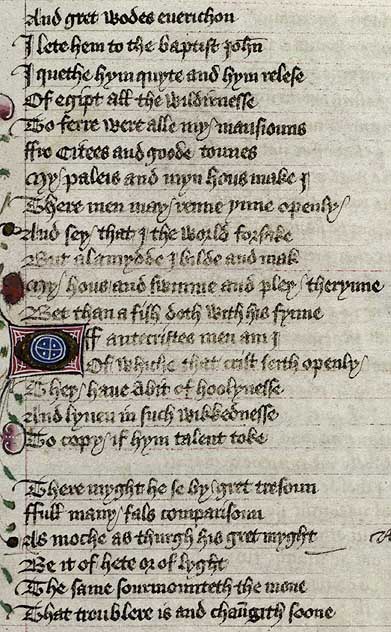 And gret wodes euerichon
I lete hem to the baptist john̄
I quethe hym quyte and hym relese
Of egipt all the wildirnesse
To ferre were alle my mansiouns
ffro Citees and goode tounes
My paleis and myn hous make I
There men may renne ynne openly
And sey that I the world forsake
But al amydde I bilde and mak
My hous and swimme and pley therynne
Bet than a fish doth with his fynne
Off antecristes men am I
Of whiche that crist seith openly
They haue abit of hoolynesse
And lyuen in such wikkednesse
To copy if hym talent toke
There myght he se by gret tresoun
ffull many fals comparisoun
As moche as thurgh his gret myght
Be it of hete or of lyght
The sonne sourmounteth the mone
That troublere is and chaūgith soone